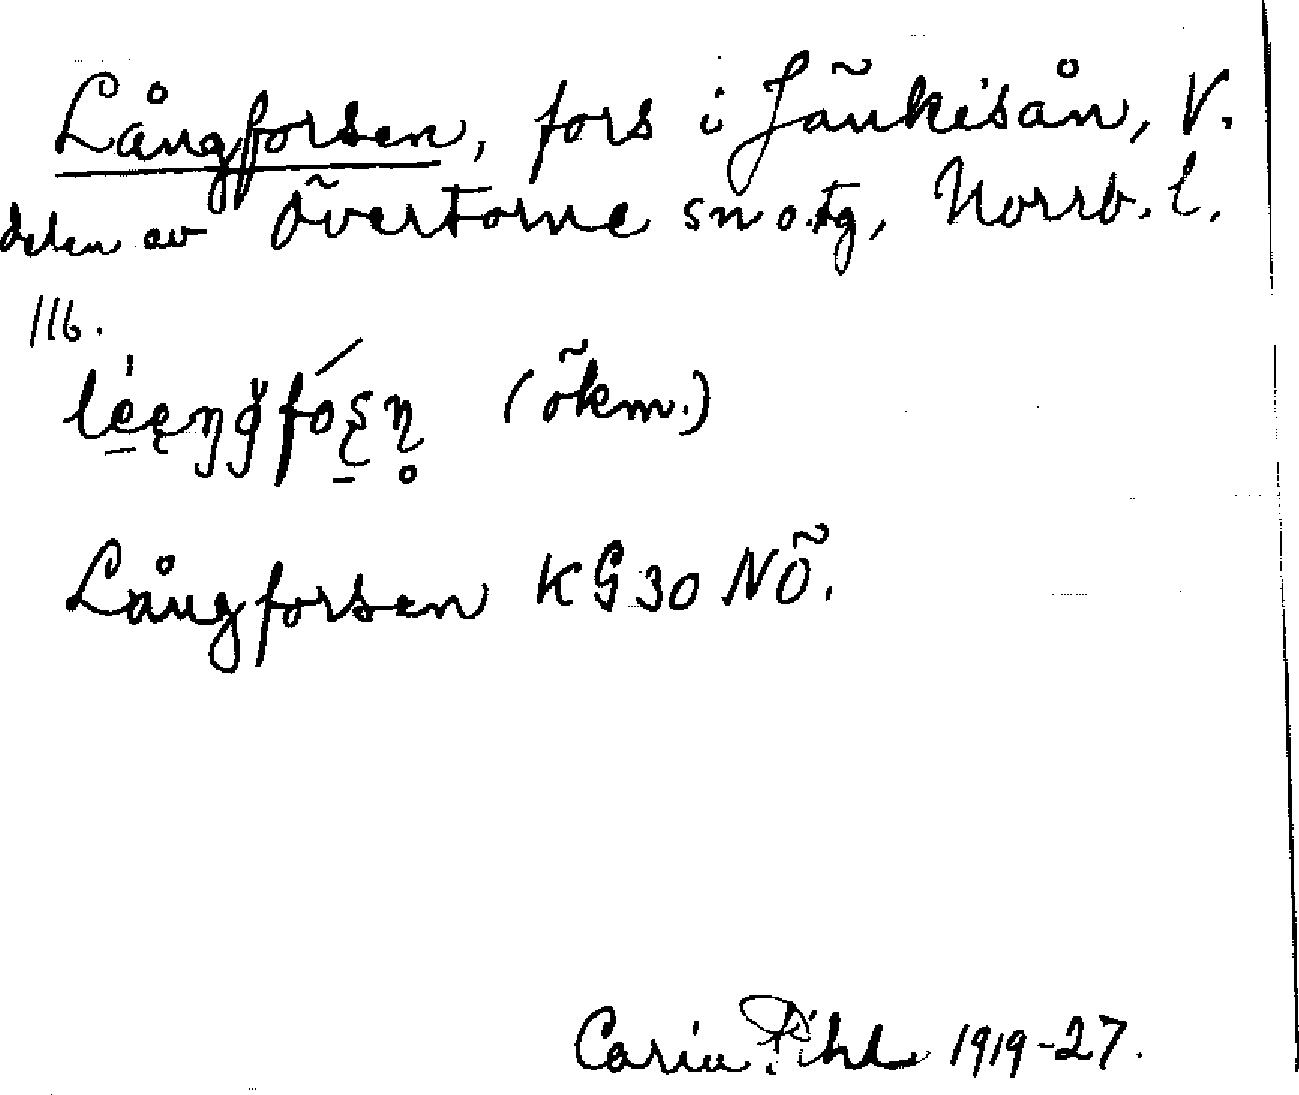 Långforsen, fors i Jänkisån, V.
delen av Övertorne sn o. tg, Norrb. l.
116.
(ökm.)
Långforsen KG30 NÖ.
Carin Pihl 1919-27.